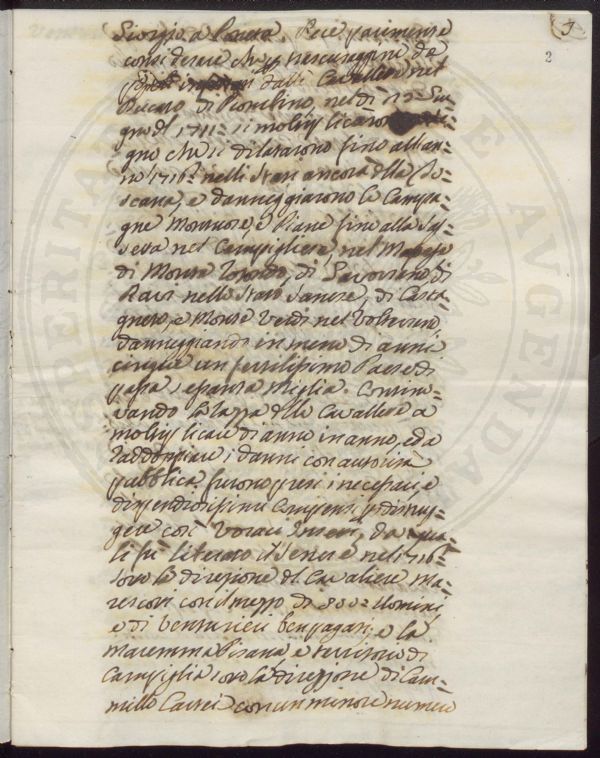 3
2
Giorgio a Fece parimente
considerare che p trascuraggine de
dalle Cavallette nel
Pucaro di Piombino, nel dì 12 Giu=
gno del 1711 si moltiplicarono
gno che si dilatarono fino all'an=
no 1716: nelli Stati ancora della To=
scana, e danneggiarono le Campa=
gne Montuose, e Piane fino alla
nel Campigliese, nel
di Monte Rotondo, di Savorano, di
Ravi nello Stato Sanese, di Casta=
gneto, e Monte Verdi nel Volterrano
danneggiando in meno di anni
cinque un fertilissimo Paese di
sopra sessanta Miglia. Conti=
vando la Razza delle Cavallette a
moltiplicare di anno in anno, ed a
raddoppiare i danni con autorità
pubblica furono presi i necessarj, e
dispendiosissimi Compensi p distrug=
gere così voraci Insetti, da qua=
li fù liberato il Senese nel 1716
sotto la direzione del Cavaliere Ma=
rescotti col mezzo di 800 Uomini,
e di Venturieri ben pagati, e la
Maremma Pisana, e territorio di
Campiglia sotto la direzione di Cam=
millo con un minore numero